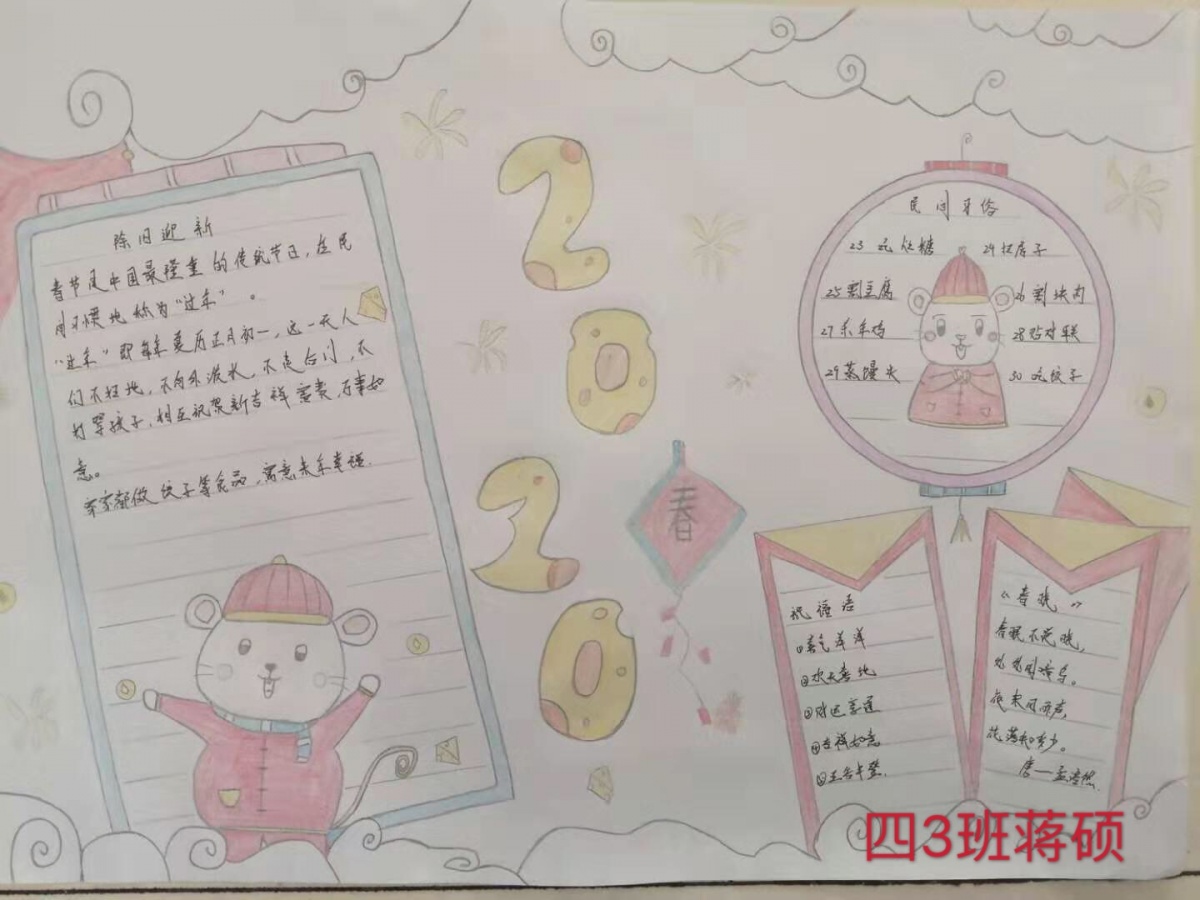 除旧迎新
春节是中国最隆重的传统节日，在民
间习惯地称为“过年”。
“过年”即每年夏历正月初一，这一天人
们不扫地，不向外泼水，不走后门，不
打骂孩子，相互祝贺新吉祥富贵，万事如
意。
家家都做饺子等食品，寓意来年幸福.
2
0
2
0
春
民间习俗
23 元灶糖 24扫房子
25割豆腐 26割块肉
27杀年鸡 28贴对联
29蒸馒头 30元饺子
祝福语
①喜气洋洋
②欢天喜地
③财运亨通
④吉祥如意
⑤五谷丰登.
《春晓》
春眠不觉晓，
处处闻啼鸟。
夜来风雨声，
花落知多少。
唐一孟浩然.
四3班蒋硕